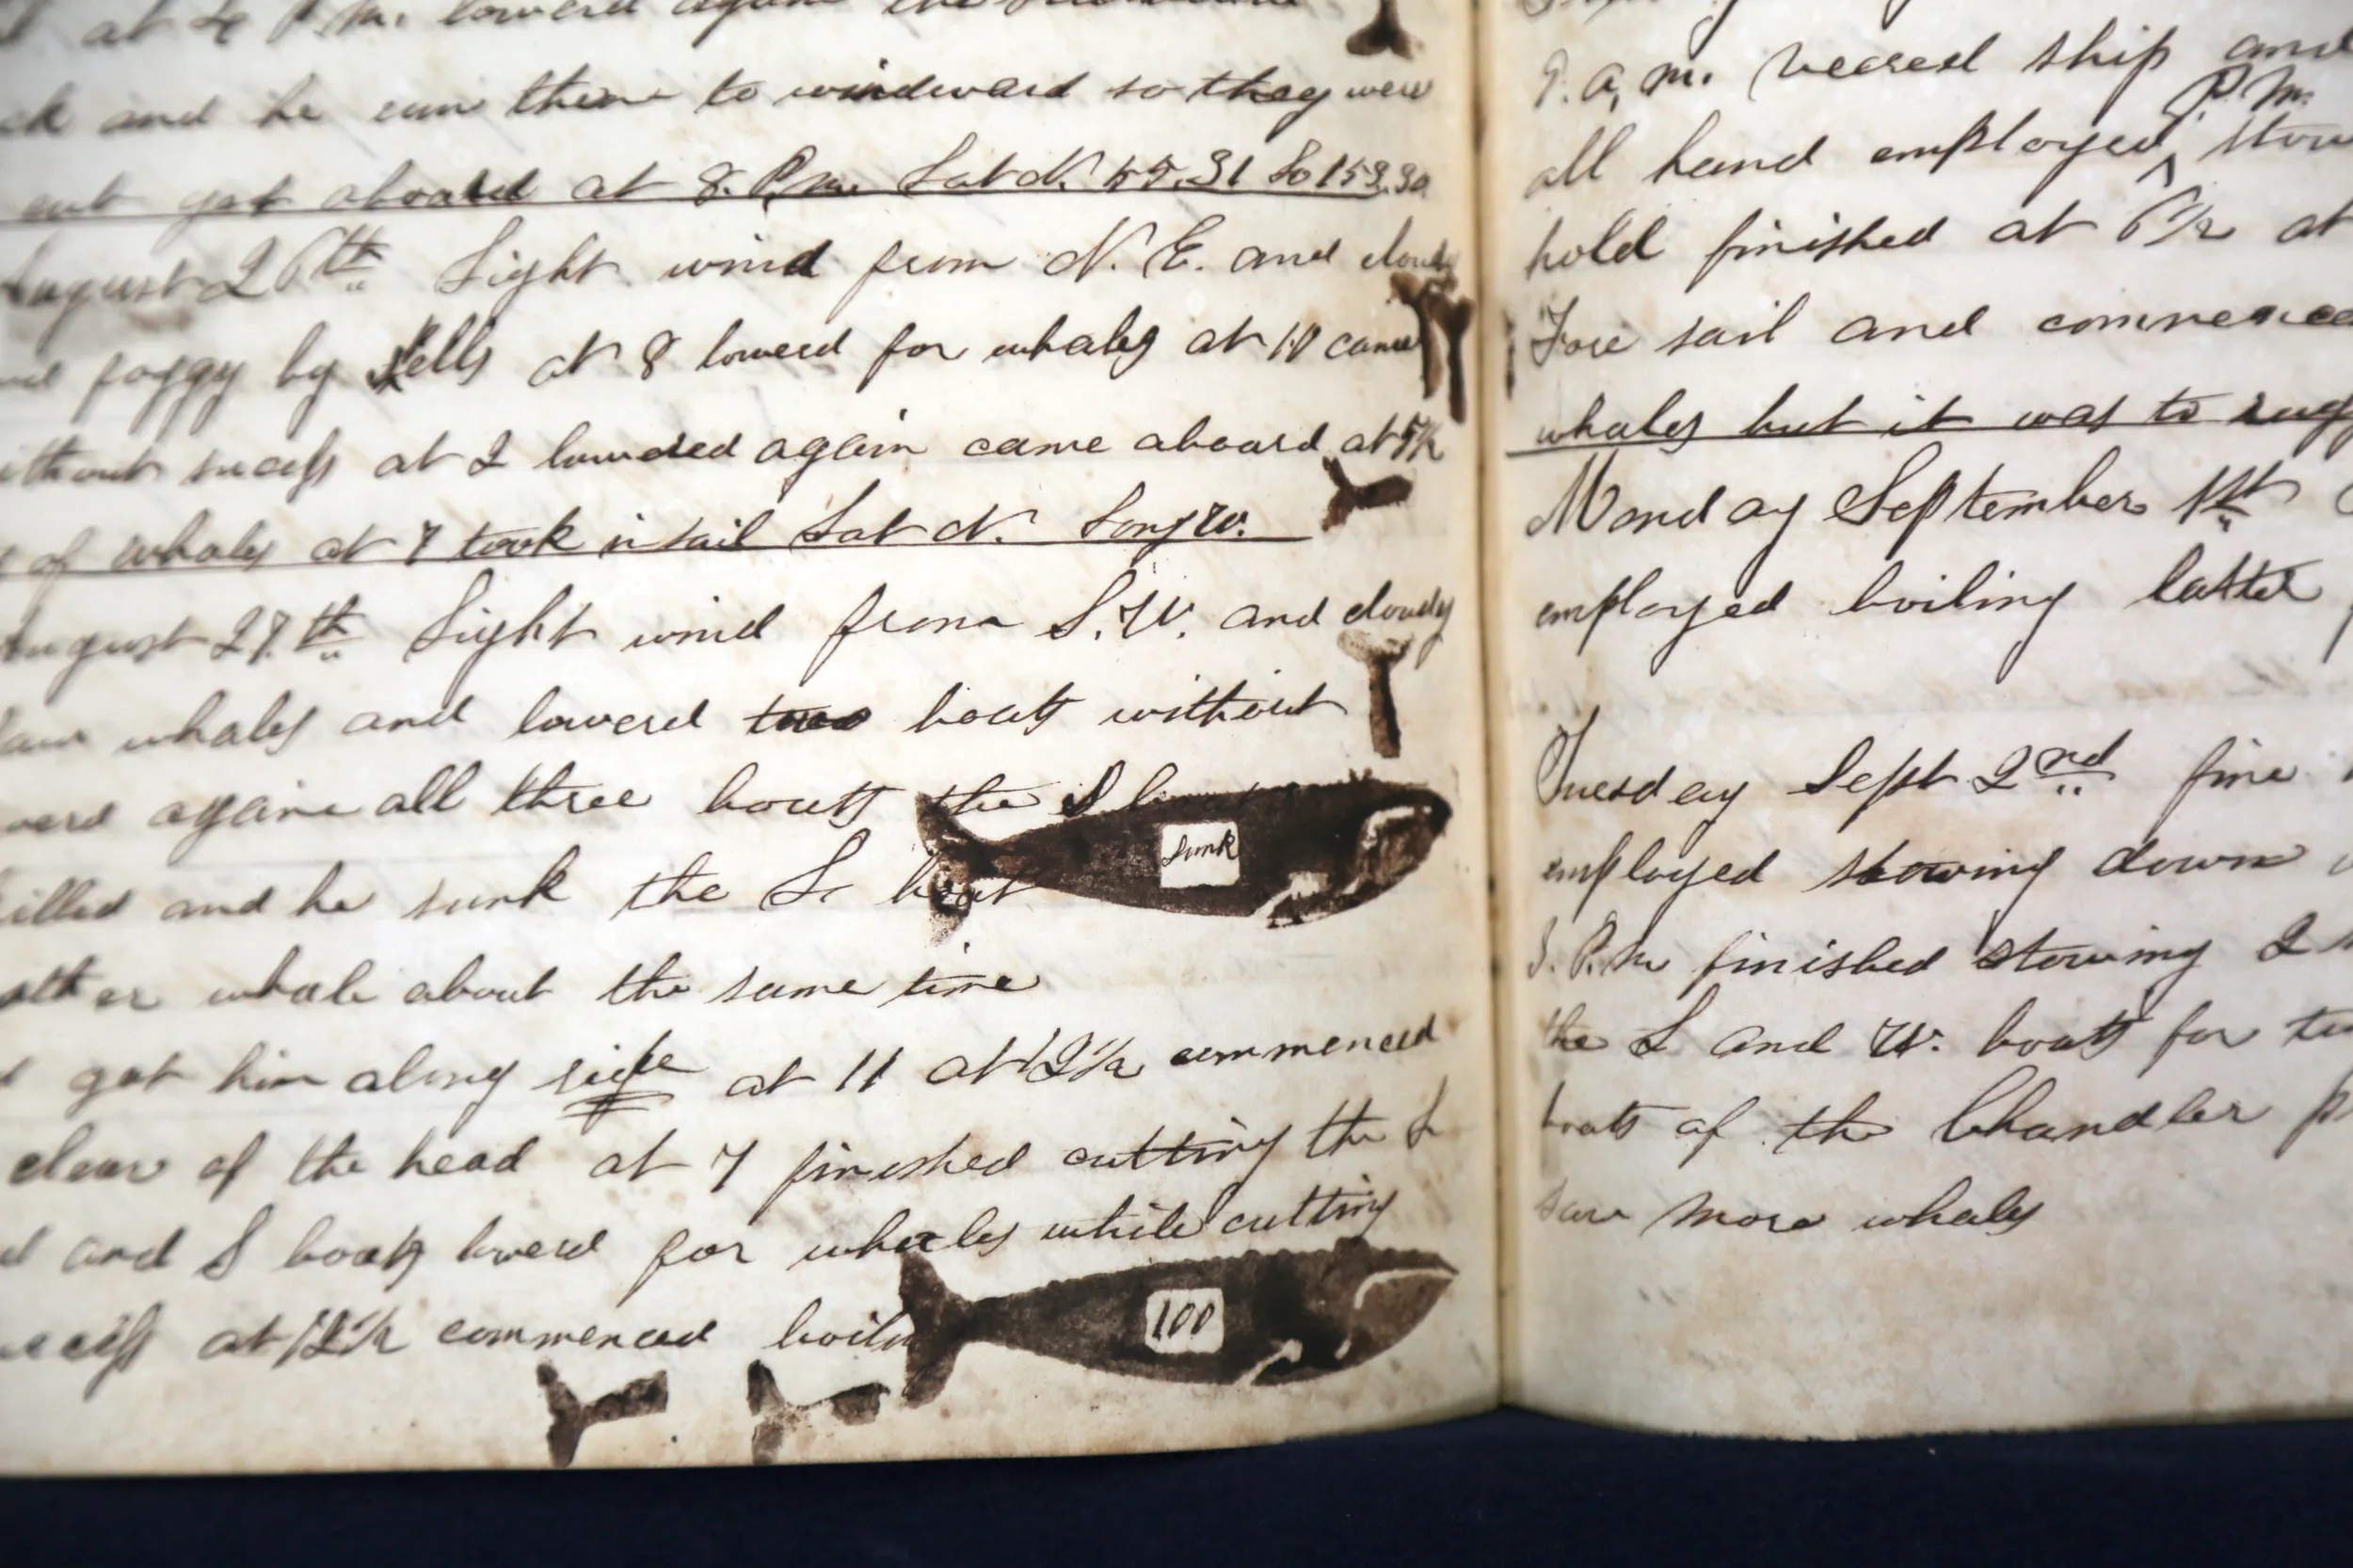 at 4 P.M. lowerd again the
and he run them to windward so they were
but got aboard at 8. P.m. Lat N. 55.31 Lo 153.30
August 26th Light wind from N. E. and cloudy
and foggy by spells at 8 lowerd for whales at 10 came
without sucess at 2 lowered again came aboard at 5½
of whales at 7 took in sail Lat N. Long W.
August 27.th Light wind from S.W. and cloudy
saw whales and lowerd two boats without
again all three boats the S
Sunk
killed and he sunk the L boat
other whale about the same time
got him along side at 11 at 12½ commenced
clear of the head at 7 finished cutting the L
and S boats lowerd for whales while cutting
at 12½ commenced boilin
100
a, m. veered ship and
P. M.
all hand employed stow
hold finished at 6½ at
Fore sail and commenced
whales but it was to rug
Monday September 1st
employed boiling latter
Tuesday Sept 2nd fine
employed stowing down
P.M finished stowing 2
the L and W. boats for
boats of the Chandler
saw more whales